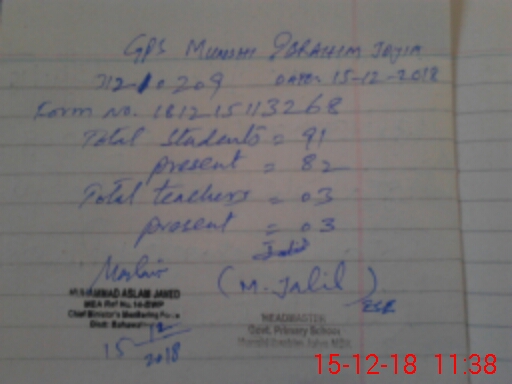 GPS MUNSHI IBRAHIM JOYIA
31210209 DATE: 15-12-2018
Form No. 181215113268
Total Students = 91
present = 82
Total teachers = 03
present = 03
Jalil
(M. Jalil)
MUHAMMAD ASLAM JAVED
MEA Ref No. 14-BWP
Chief Minister's Monitoring Force
Distt: Bahawal
HEADMASTER
Govt. Primary School
15 12 2018
15-12-18 11:38